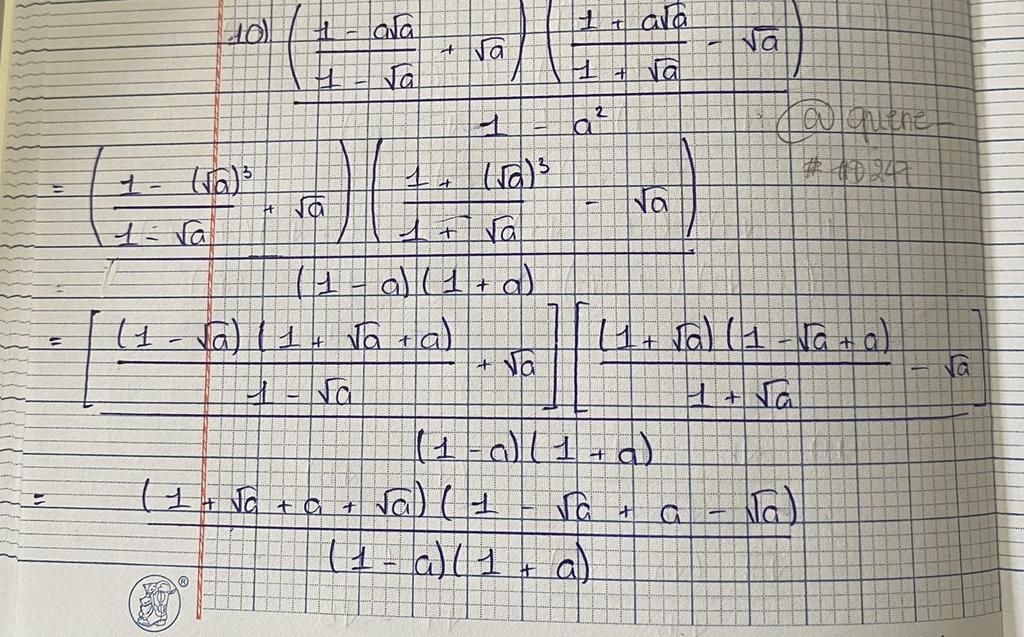 10) ( (1 - a√a)/(1 - √a) + √a ) ( (1 + a√a)/(1 + √a) - √a )
1 - a²
@ quene
= ( (1 - (√a)³)/(1 - √a) + √a ) ( (1 + (√a)³)/(1 + √a) - √a )
(1 - a)(1 + a)
= [ (1 - √a)(1 + √a + a)/(1 - √a) + √a ] [ (1 + √a)(1 - √a + a)/(1 + √a) - √a ]
(1 - a)(1 + a)
= (1 + √a + a + √a)(1 - √a + a - √a)
(1 - a)(1 + a)
®